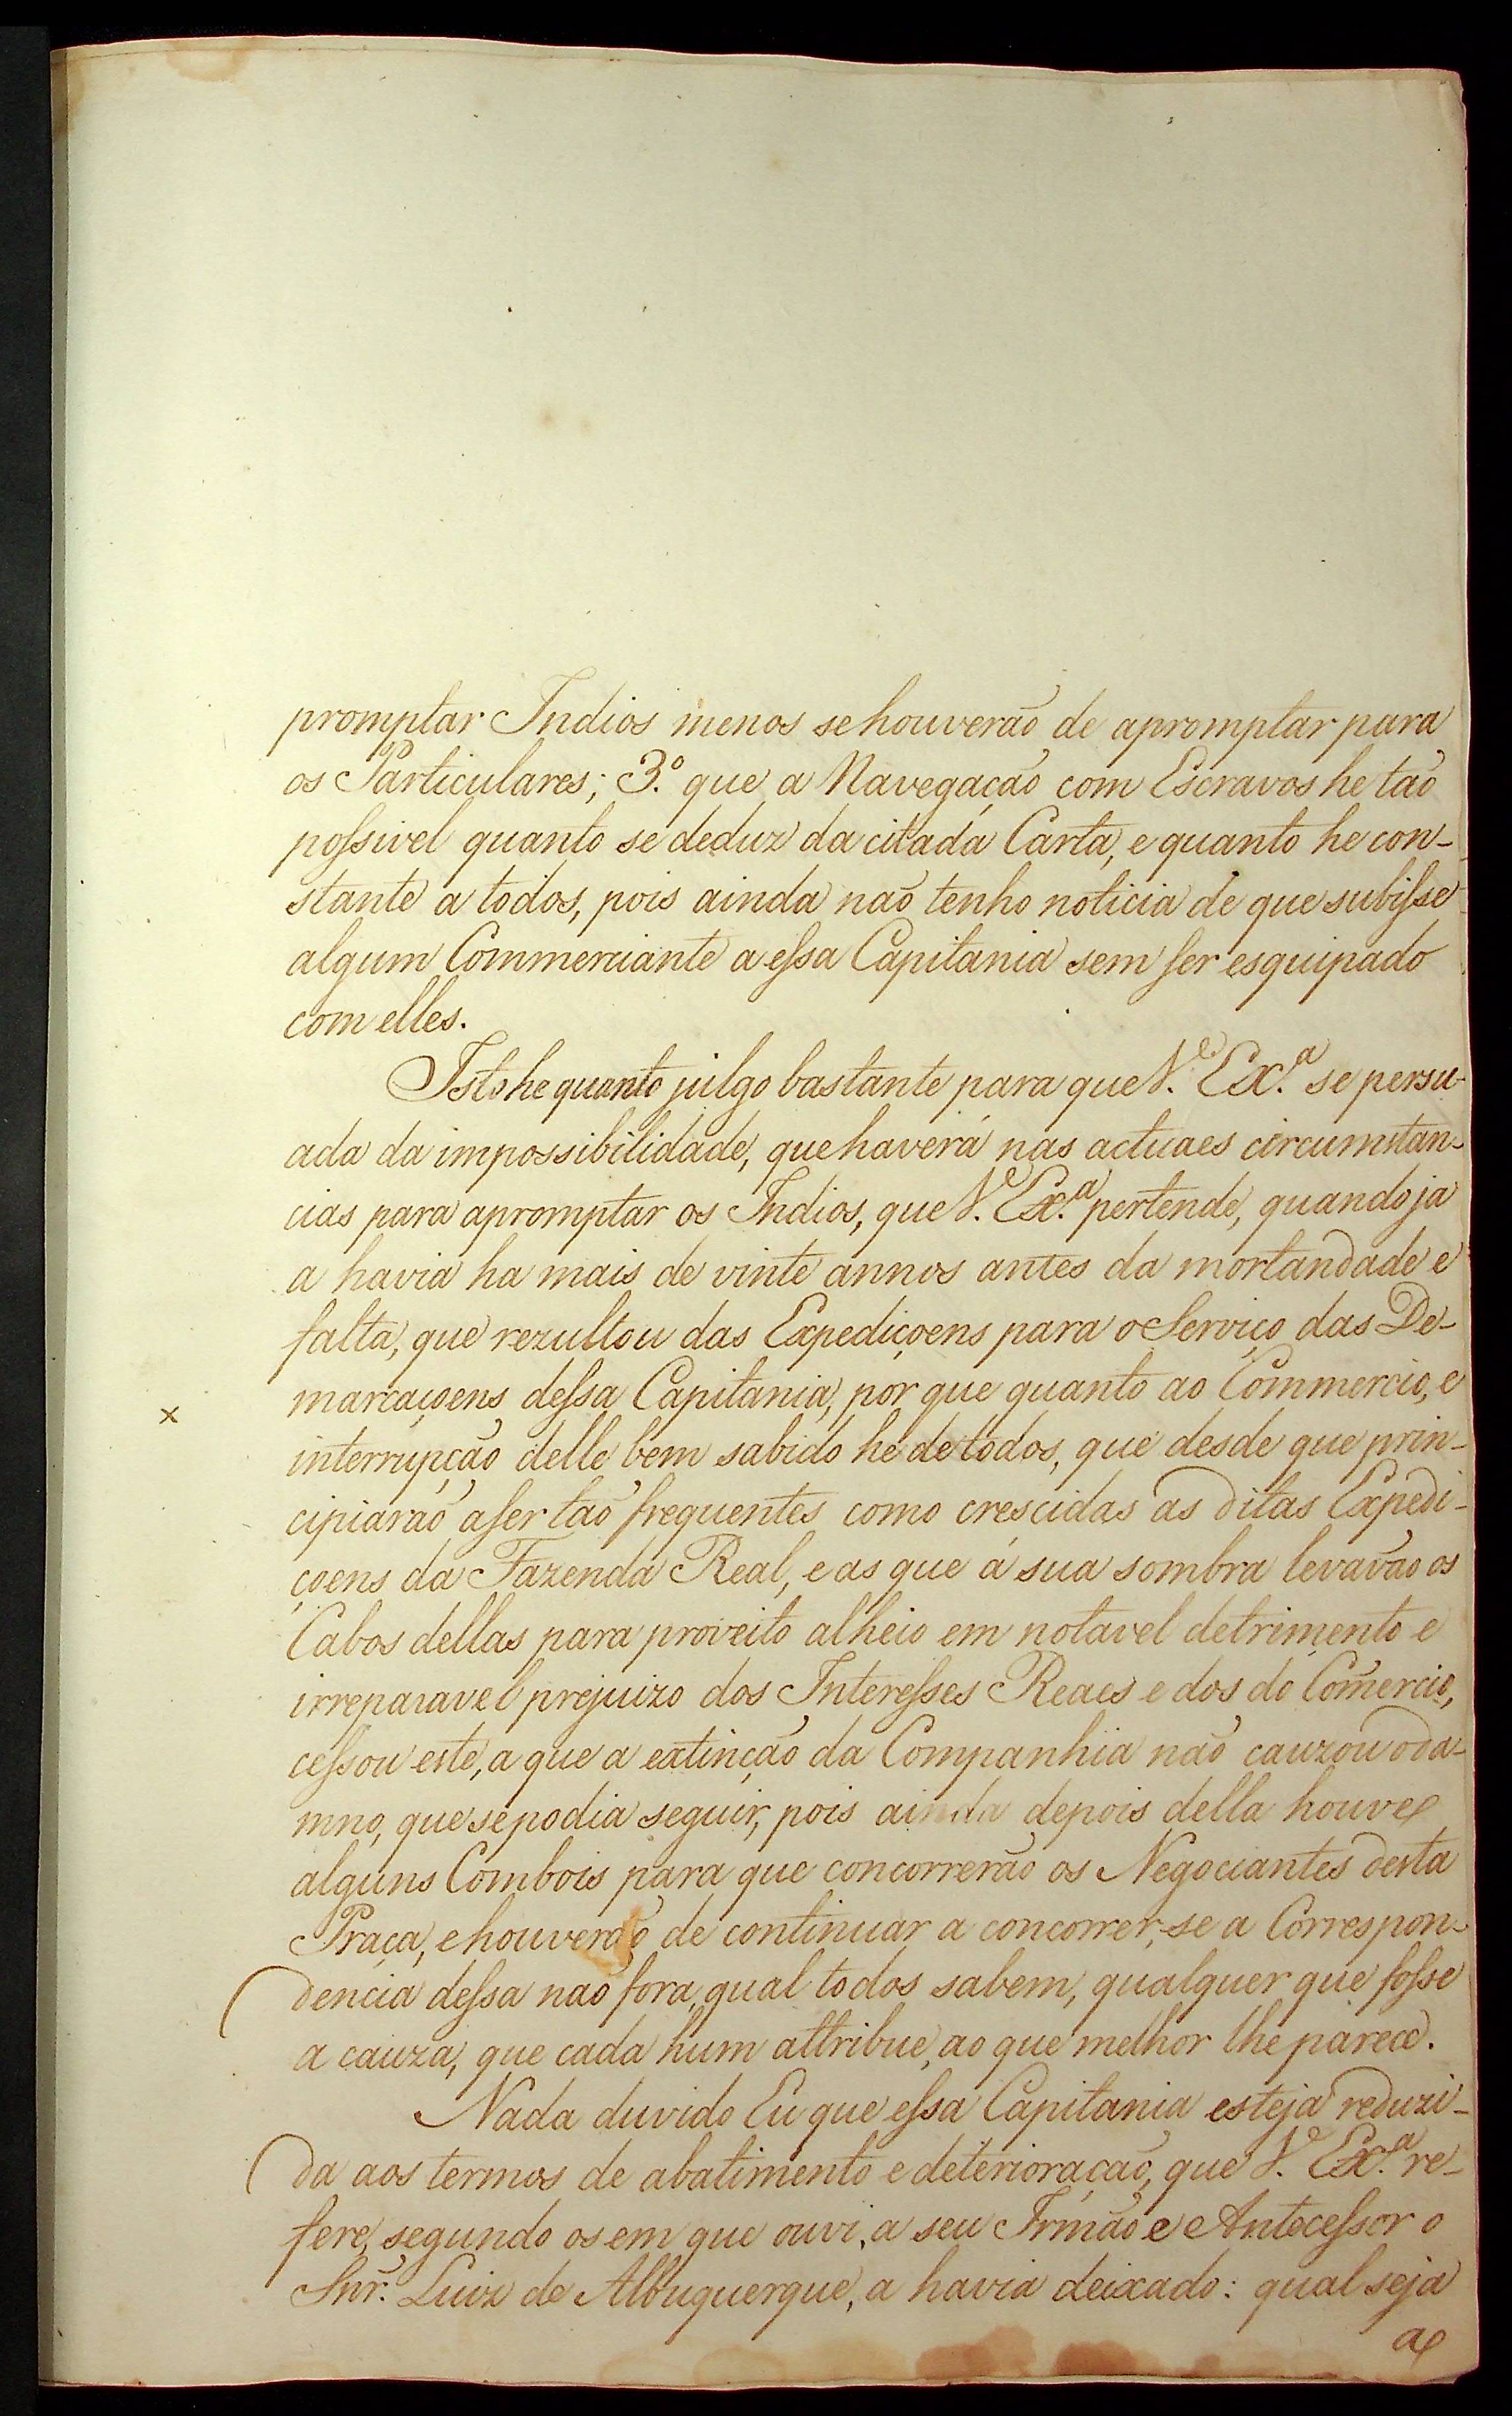 promptar Indios menos se houverão de apromptar para
os Particulares; 3.º que a Navegação com Escravos he tão
poſsivel quanto se deduz da citada Carta, e quanto he con-
stante a todos, pois ainda não tenho noticia de que subiſse
algum Commerciante a eſsa Capitania sem ser esquipado
com elles.
Isto he quanto julgo bastante para que V. Ex.ª se persu-
ada da impossibilidade, que haverá nas actuaes circumstan-
cias para apromptar os Indios, que V. Ex.ª pertende, quando ja
a havia ha mais de vinte annos antes da mortandade e
falta, que rezultou das Expediçoens para o Serviço das De-
marcaçoens deſsa Capitania, por que quanto ao Commercio, e
x
interrupção delle bem sabido he de todos, que desde que prin-
cipiarão a ser tão frequentes como crescidas as ditas Expedi-
çoens da Fazenda Real, e as que á sua sombra levavão os
Cabos dellas para proveito alheio em notavel detrimento e
irreparavel prejuizo dos Intereſses Reaes e dos do Comercio,
ceſsou este, a que a extinção da Companhia não cauzou o da-
mno, que se podia seguir, pois ainda depois della houve
alguns Combois para que concorrerão os Negociantes desta
Praça, e houverão de continuar a concorrer, se a Correspon-
dencia deſsa não fora, qual todos sabem, qualquer que foſse
a cauza, que cada hum attribue, ao que melhor lhe parece.
Nada duvido Eu que eſsa Capitania esteja reduzi-
da aos termos de abatimento e deterioração, que V. Ex.ª re-
fere, segundo os em que ouvi, a seu Irmão e Anteceſsor o
Snr. Luiz de Albuquerque, a havia deixado: qual seja
a